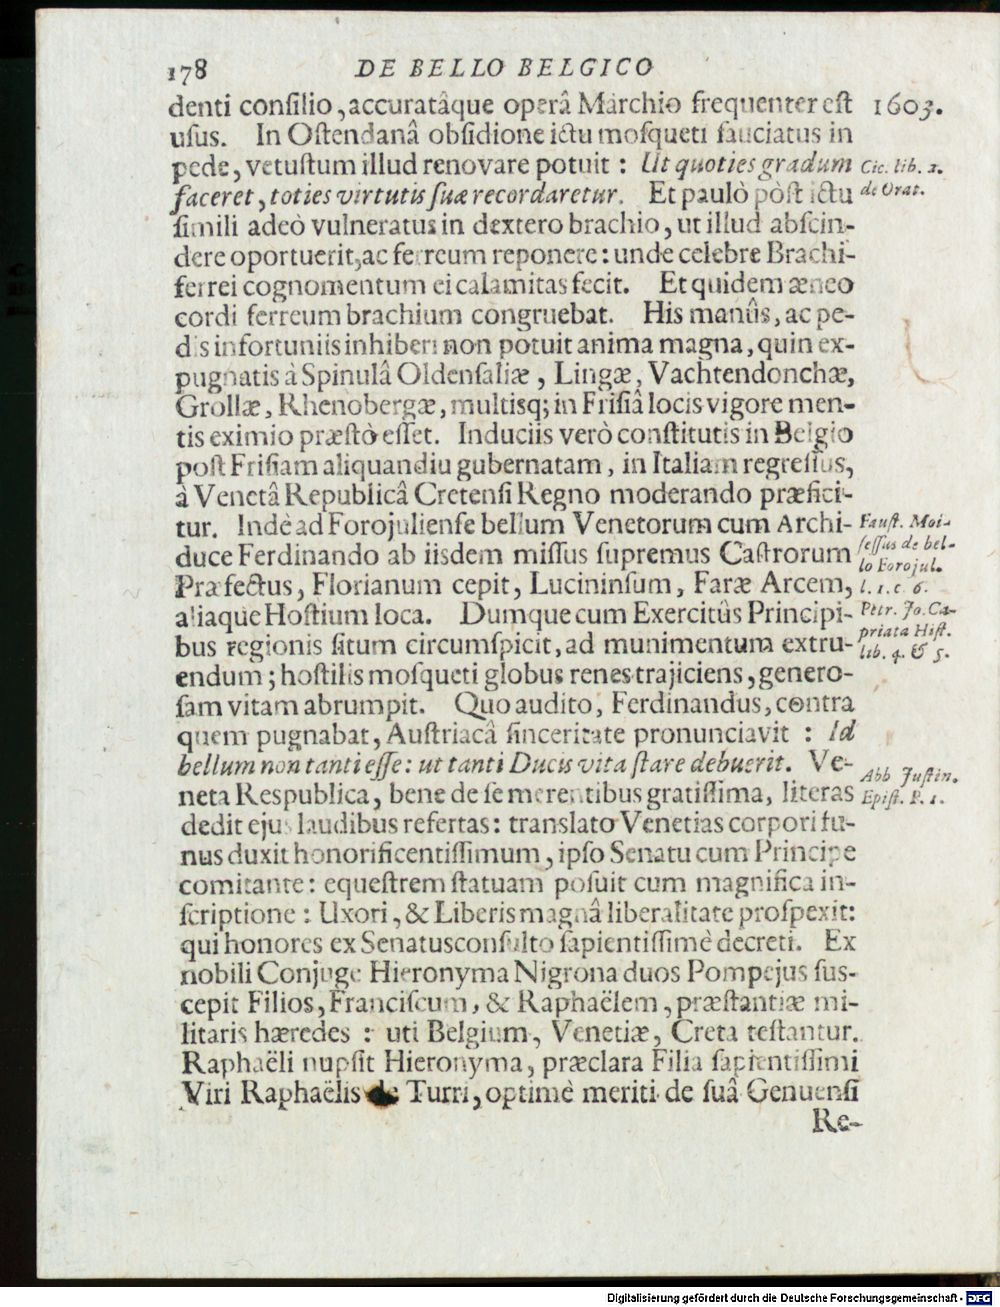 178 DE BELLO BELGICO
denti conſilio, accuratâque operâ Marchio frequenter eſt 1603.
uſus. In Oſtendanâ obſidione ictu moſqueti ſauciatus in
pede, vetuſtum illud renovare potuit : Ut quoties gradum Cic. lib. 2.
faceret, toties virtutis ſuæ recordaretur. Et paulò pòſt ictu de Orat.
ſimili adeò vulneratus in dextero brachio, ut illud abſcin-
dere oportuerit, ac ferreum reponere : unde celebre Brachi-
ferrei cognomentum ei calamitas fecit. Et quidem æneo
cordi ferreum brachium congruebat. His manûs, ac pe-
dis infortuniis inhiberi non potuit anima magna, quin ex-
pugnatis à Spinulâ Oldenſaliæ, Lingæ, Vachtendonchæ,
Grollæ, Rhenobergæ, multisq; in Friſiâ locis vigore men-
tis eximio præſtò eſſet. Induciis verò conſtitutis in Belgio
poſt Friſiam aliquandiu gubernatam, in Italiam regreſſus,
à Venetâ Republicâ Cretenſi Regno moderando præfici-
tur. Indè ad Forojulienſe bellum Venetorum cum Archi- Fauſt. Moi-
duce Ferdinando ab iisdem miſſus ſupremus Caſtrorum ſeſſus de bel-
lo Forojul.
Præfectus, Florianum cepit, Lucininſum, Faræ Arcem, l. 1. c. 6.
aliaque Hoſtium loca. Dumque cum Exercitûs Principi- Petr. Jo. Ca-
priata Hiſt.
bus regionis ſitum circumſpicit, ad munimentum extru- lib. 4. & 5.
endum ; hoſtilis moſqueti globus renes trajiciens, genero-
ſam vitam abrumpit. Quo audito, Ferdinandus, contra
quem pugnabat, Auſtriacâ ſinceritate pronunciavit : Id
bellum non tanti eſſe : ut tanti Ducis vita ſtare debuerit. Ve- Abb Juſtin.
neta Respublica, bene de ſe merentibus gratiſſima, literas Epiſt. P. 1.
dedit ejus laudibus refertas : translato Venetias corpori fu-
nus duxit honorificentiſſimum, ipſo Senatu cum Principe
comitante : equeſtrem ſtatuam poſuit cum magnifica in-
ſcriptione : Uxori, & Liberis magnâ liberalitate proſpexit:
qui honores ex Senatusconſulto ſapientiſſimè decreti. Ex
nobili Conjuge Hieronyma Nigrona duos Pompejus ſus-
cepit Filios, Franciſcum, & Raphaëlem, præſtantiæ mi-
litaris hæredes : uti Belgium, Venetiæ, Creta teſtantur.
Raphaëli nupſit Hieronyma, præclara Filia ſapientiſſimi
Viri Raphaëlis de Turri, optimè meriti de ſuâ Genuenſi
Re-
Digitalisierung gefördert durch die Deutsche Forschungsgemeinschaft - DFG